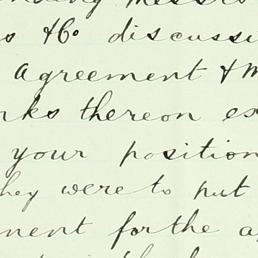 messrs
& Co discussi
agreement & m
rks thereon ex
your position
hey were to put
nent for the a